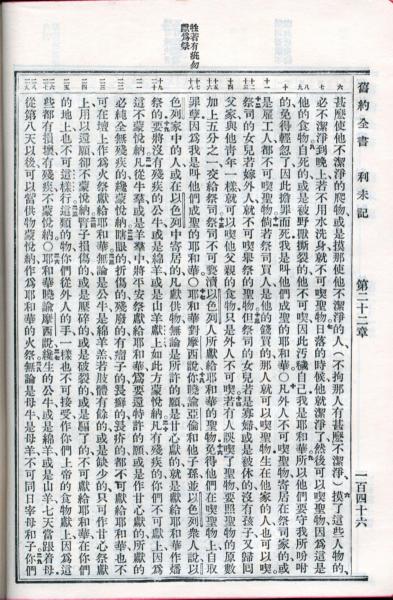 舊約全書 利未記 第二十二章 一百四十六
牲若有疵勿
獻爲祭
甚麼使他不潔淨的爬物或是摸那使他不潔淨的人、（不拘那人有甚麼不潔淨）摸了這些人物的、
必不潔淨到晚上若不用水洗身就不可喫聖物日落的時候他就潔淨了然後可以喫聖物因爲這是
他的食物自死的或是被野獸撕裂的他不可喫因此汚穢自己我是耶和華所以他們要守我所吩咐
的免得輕忽了因此擔罪而死我是叫他們成聖的耶和華〇凡外人不可喫聖物寄居在祭司家的或
是雇工人都不可喫聖物倘若祭司買人是他的錢買的那人就可以喫聖物生在他家的人也可以喫
祭司的女兒若嫁外人就不可喫舉祭的聖物但祭司的女兒若是寡婦或是被休的沒有孩子又歸囘
父家與他青年一樣就可以喫他父親的食物只是外人不可喫若有人誤喫了聖物要照聖物的原數
加上五分之一交給祭司祭司不可褻瀆以色列人所獻給耶和華的聖物免得他們在喫聖物上自取
罪孽因爲我是叫他們成聖的耶和華〇耶和華對摩西說你曉諭亞倫和他子孫並以色列衆人說以
色列家中的人或在以色列中寄居的凡獻供物無論是所許的願是甘心獻的就是獻給耶和華作燔
祭的要將沒有殘疾的公牛或是綿羊或是山羊獻上如此方蒙悅納凡有殘疾的你們不可獻上因爲這
不蒙悅納凡從牛羣或是羊羣中將平安祭獻給耶和華爲要還特許的願或是作甘心獻的所獻的
必純全無殘疾的纔蒙悅納瞎眼的折傷的殘廢的有瘤子的長癬的長疥的都不可獻給耶和華也不
可在壇上作爲火祭獻給耶和華無論是公牛是綿羊羔若肢體有餘的或是缺少的只可作甘心祭獻
上用以還願卻不蒙悅納腎子損傷的或是壓碎的或是破裂的或是騸了的不可獻給耶和華在你們
的地上也不可這樣行這類的物你們從外人的手一樣也不可接受作你們上帝的食物獻上因爲這
些都有損壞有殘疾不蒙悅納〇耶和華曉諭摩西說纔生的公牛或是綿羊或是山羊七天當跟着母
從第八天以後可以當供物蒙悅納作爲耶和華的火祭無論是母牛是母羊不可同日宰母和子你們